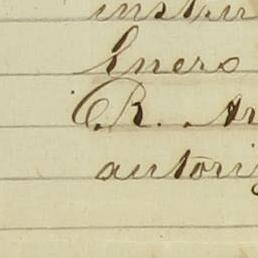 instru
Enero
R. Ar
autori